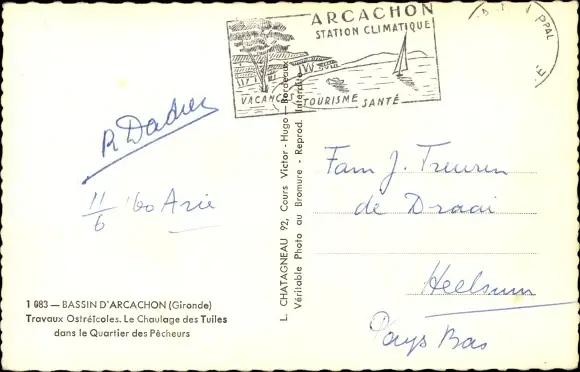 ARCACHON
STATION CLIMATIQUE
VACANCES TOURISME SANTÉ
PPAL
R Dadier
11/6 '60 Arie
1 083 — BASSIN D'ARCACHON (Gironde)
Travaux Ostréicoles. Le Chaulage des Tuiles
dans le Quartier des Pêcheurs
L. CHATAGNEAU 92, Cours Victor-Hugo — Bordeaux
Véritable Photo au Bromure - Reprod. Interdite
Fam J. Treuren
de Draai
Heelsum
Pays Bas